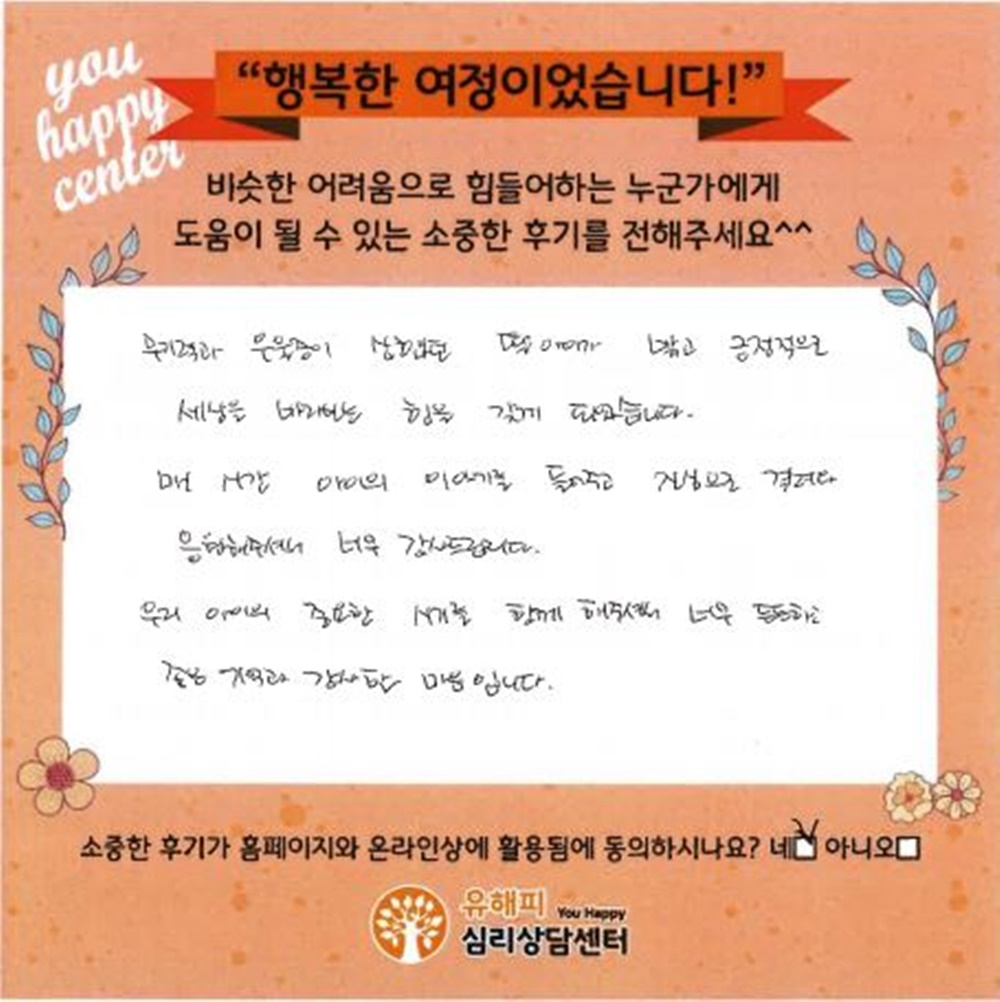 you
happy
center
“행복한 여정이었습니다!”
비슷한 어려움으로 힘들어하는 누군가에게
도움이 될 수 있는 소중한 후기를 전해주세요^^
무기력과 우울증이 심했던 딸아이가 밝고 긍정적으로
세상을 바라보는 힘을 갖게 되었습니다.
매 시간 아이의 이야기를 들어주고 진심으로 격려와
응원해주셔서 너무 감사드립니다.
우리 아이의 중요한 시기를 함께 해주셔서 너무 든든하고
좋은 기억과 감사한 마음입니다.
소중한 후기가 홈페이지와 온라인상에 활용됨에 동의하시나요? 네☑ 아니오☐
유해피 You Happy
심리상담센터